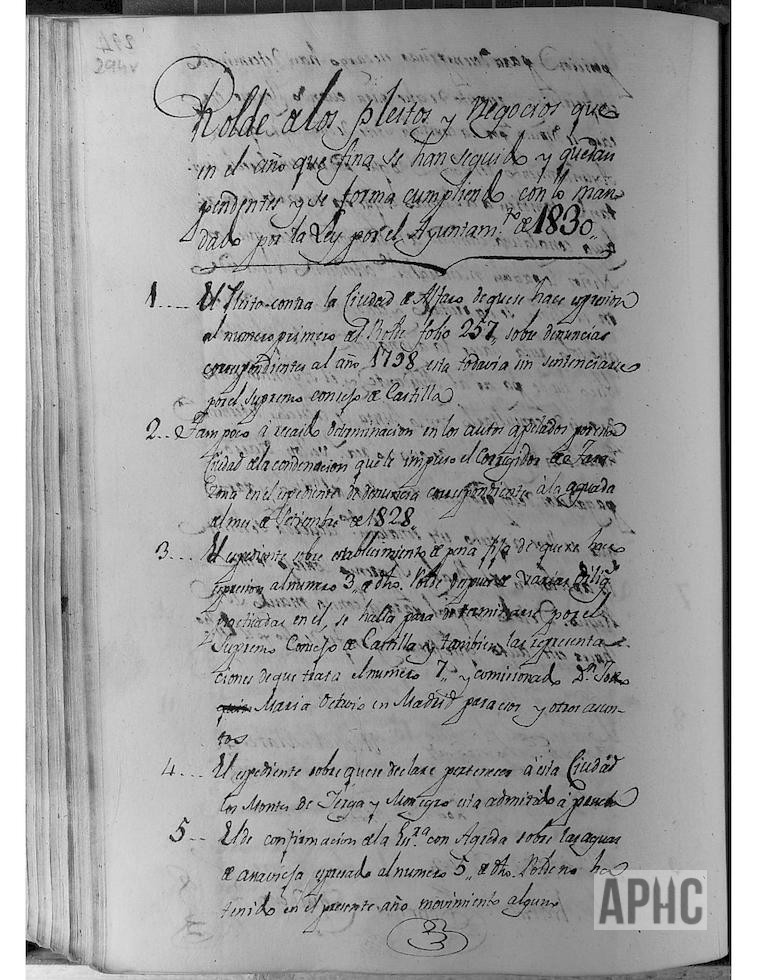 294
294v
Rolde à los pleitos y Negocios que
en el año que fina se han seguido y quedan
pendentes y se forma cumpliendo con lo man-
dado por la Ley por el Ayuntam.to de 1830.
1.... El Pleito contra la Ciudad de Alfaro de que se hace espresion
al numero primero del Rolde folio 257,, sobre denuncias
correspondientes al año 1798 esta todavia sin sentenciarse
por el Supremo consejo de Castilla
2.. Tampoco à recaido determinacion en los autos apelados por esta
Ciudad de la condenacion que le impuso el Corregidor de Tara-
zona en el espediente de denuncia correspondiente à la aguada
del mes de Setiembre de 1828.
3... El espediente sobre establecimiento de pena fija de que se hace
espresion al numero 3,, de dho. Rolde despues de varias dilig.s
practicadas en el, se halla para determinarse por el
Supremo Consejo de Castilla y tambien las representa-
ciones de que trata el numero 7,, y comisionado D.n Joa-
quin Maria Octavio en Madrid para esos y otros asun-
tos
4... El espediente sobre que se declare pertenecer à esta Ciudad
los Montes de Yerga y Monegro esta admitido à prueba
5.. El de confirmacion de la Es.ra con Agreda sobre las aguas
de anavieja espresado al numero 5,, de dho. Rolde no ha
tenido en el presente año movimiento alguno
APHC